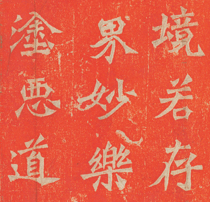 境若存
界妙樂
塗惡道